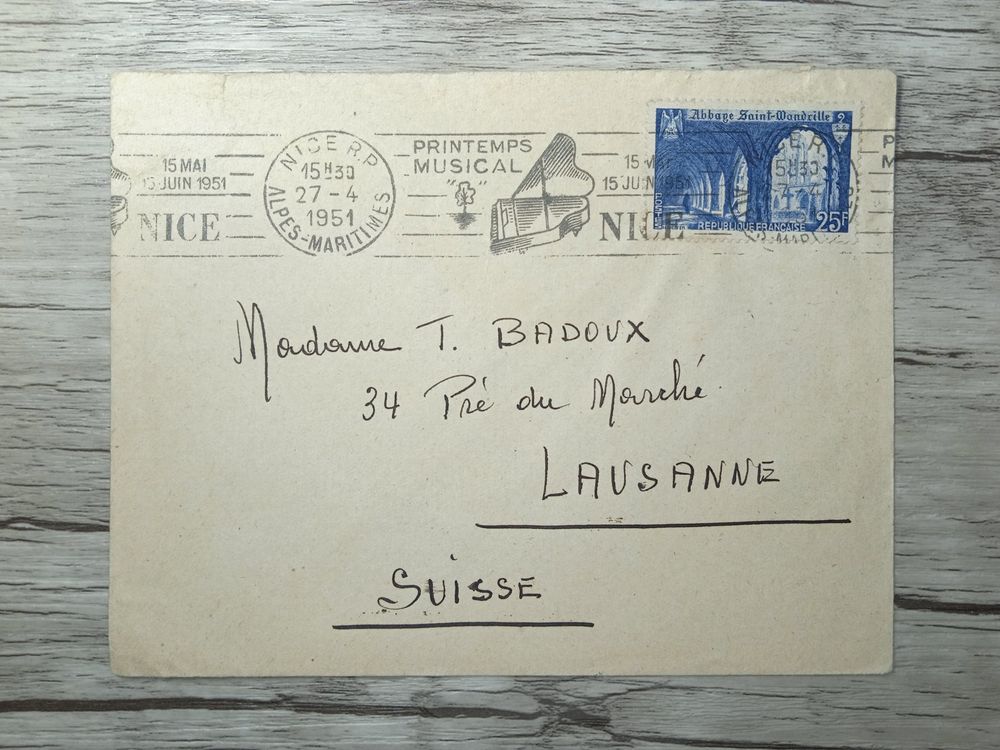 15 MAI
15 JUIN 1951
NICE
NICE R.P.
15H30
27-4
1951
ALPES-MARITIMES
PRINTEMPS
MUSICAL
15 MAI
15 JUIN 1951
NICE
Abbaye Saint-Wandrille
REPUBLIQUE FRANÇAISE 25F
Madame T. BADOUX
34 Pré du Marché
LAUSANNE
SUISSE